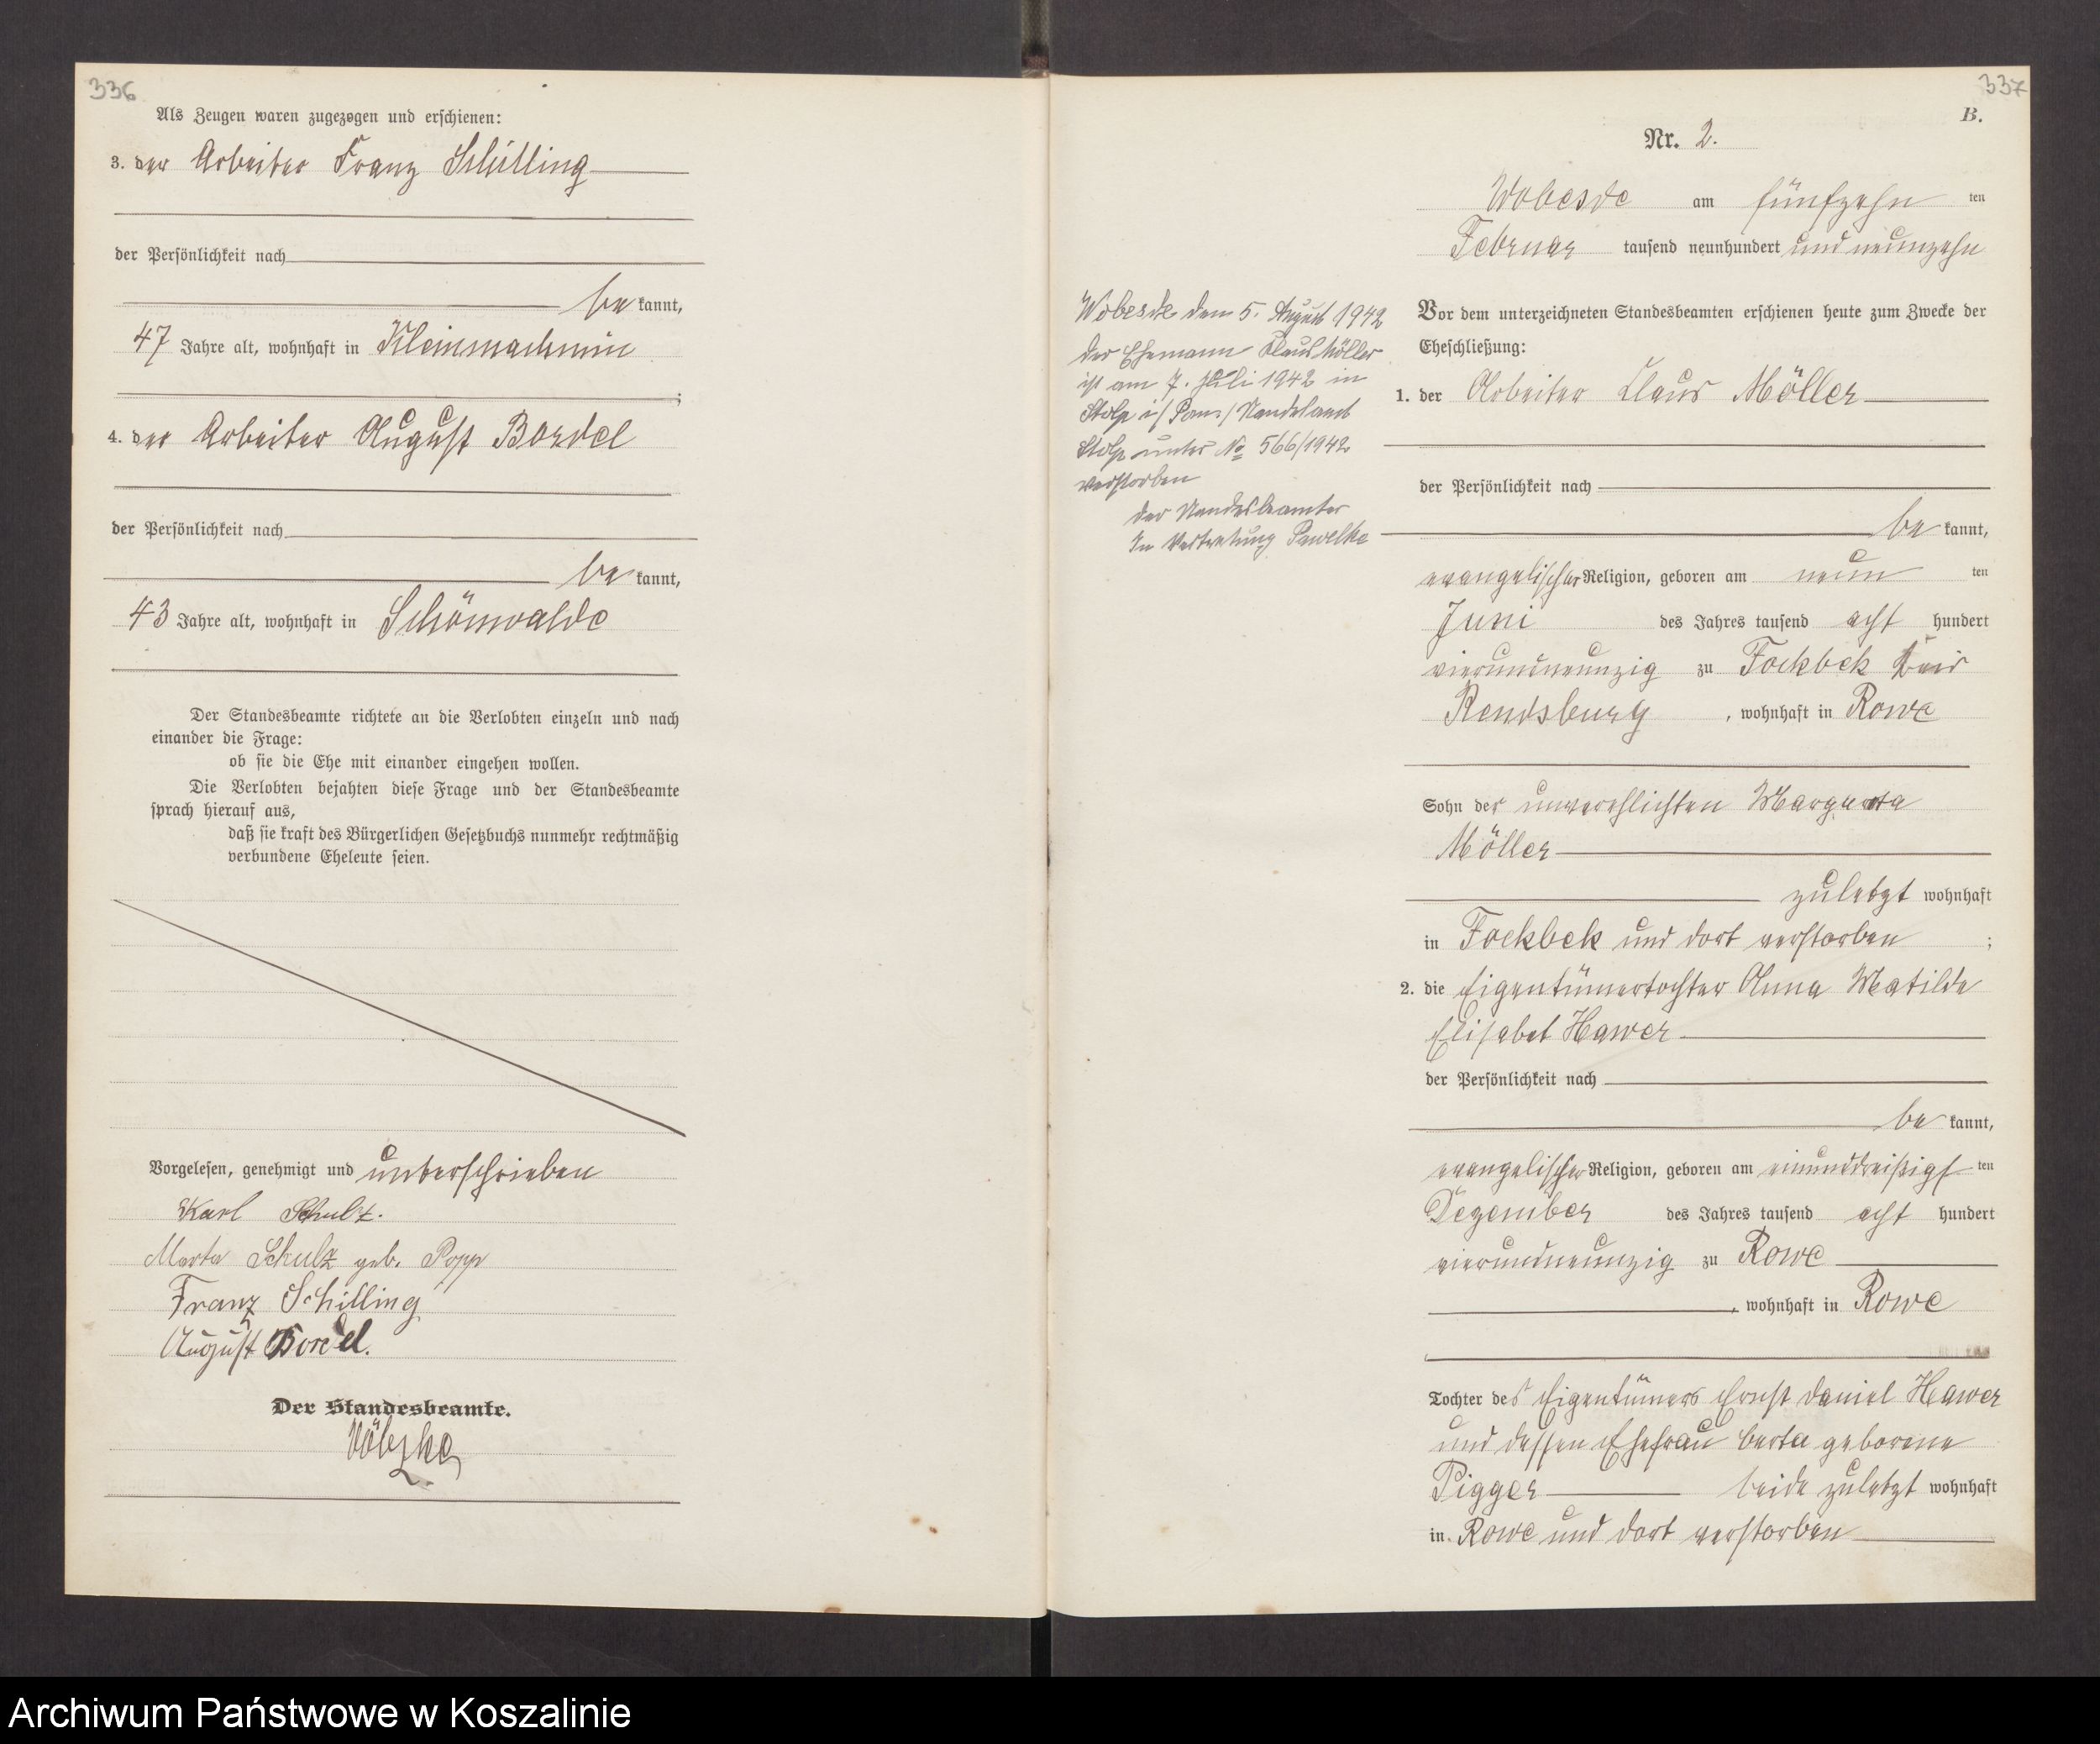 336
Als Zeugen waren zugezogen und erschienen:
3. der Arbeiter Franz Schilling
der Persönlichkeit nach
be kannt,
47 Jahre alt, wohnhaft in Kleinmachmin
;
4. der Arbeiter August Bordel
der Persönlichkeit nach
be kannt,
43 Jahre alt, wohnhaft in Schönwalde
Der Standesbeamte richtete an die Verlobten einzeln und nach
einander die Frage:
ob sie die Ehe mit einander eingehen wollen.
Die Verlobten bejahten diese Frage und der Standesbeamte
sprach hierauf aus,
daß sie kraft des Bürgerlichen Gesetzbuchs nunmehr rechtmäßig
verbundene Eheleute seien.
Vorgelesen, genehmigt und unterschrieben
Karl Schulz.
Marta Schulz geb. Popp
Franz Schilling
August Bordel.
Der Standesbeamte.
337
B.
Nr. 2.
Wobesde am fünfzehn ten
Februar tausend neunhundert und neunzehn
Vor dem unterzeichneten Standesbeamten erschienen heute zum Zwecke der
Eheschließung:
1. der Arbeiter Claus Möller
der Persönlichkeit nach
be kannt,
evangelischer Religion, geboren am neun ten
Juni des Jahres tausend acht hundert
vierundneunzig zu Fockbek Kreis
Rendsburg, wohnhaft in Rowe
Sohn der unverehlichten Margareta
Möller
zuletzt wohnhaft
in Fockbek und dort verstorben ;
2. die Eigentümertochter Anna Matilde
Elisabet Hawer
der Persönlichkeit nach
be kannt,
evangelischer Religion, geboren am einunddreißigs ten
Dezember des Jahres tausend acht hundert
vierundneunzig zu Rowe
, wohnhaft in Rowe
Tochter des Eigentümers Ernst Daniel Hawer
und dessen Ehefrau Berta geborene
Pigger beide zuletzt wohnhaft
in Rowe und dort verstorben
Wobesde den 5. August 1942
Der Ehemann Klaus Möller
ist am 7. Juli 1942 in
Stolp i/Pom./Standesamt
Stolp unter No 566/1942
verstorben
Der Standesbeamter
In Vertretung Pawelke
Archiwum Państwowe w Koszalinie